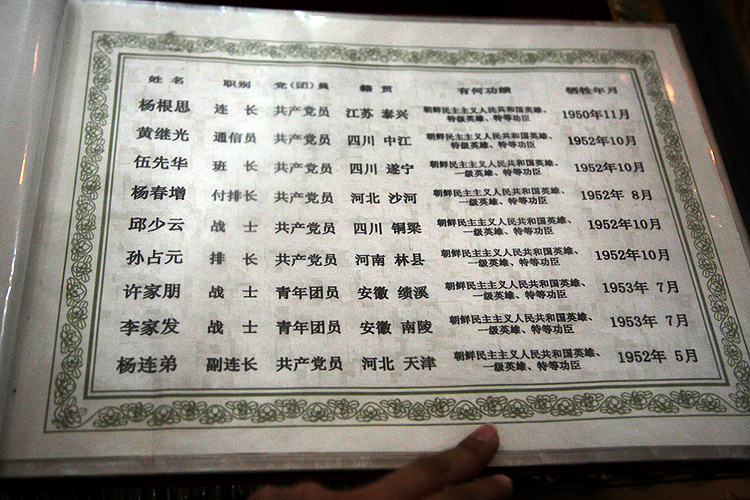 姓名 职别 党(团)员 籍贯 有何功绩 牺牲年月
杨根思 连长 共产党员 江苏 泰兴 朝鲜民主主义人民共和国英雄、 1950年11月
特级英雄、特等功臣
黄继光 通信员 共产党员 四川 中江 朝鲜民主主义人民共和国英雄、 1952年10月
特级英雄、特等功臣
伍先华 班长 共产党员 四川 遂宁 朝鲜民主主义人民共和国英雄、 1952年10月
一级英雄、特等功臣
杨春增 付排长 共产党员 河北 沙河 朝鲜民主主义人民共和国英雄、 1952年 8月
一级英雄、特等功臣
邱少云 战士 共产党员 四川 铜梁 朝鲜民主主义人民共和国英雄、 1952年10月
一级英雄、特等功臣
孙占元 排长 共产党员 河南 林县 朝鲜民主主义人民共和国英雄、 1952年10月
一级英雄、特等功臣
许家朋 战士 青年团员 安徽 绩溪 朝鲜民主主义人民共和国英雄、 1953年 7月
一级英雄、特等功臣
李家发 战士 青年团员 安徽 南陵 朝鲜民主主义人民共和国英雄、 1953年 7月
一级英雄、特等功臣
杨连弟 副连长 共产党员 河北 天津 朝鲜民主主义人民共和国英雄、 1952年 5月
一级英雄、特等功臣